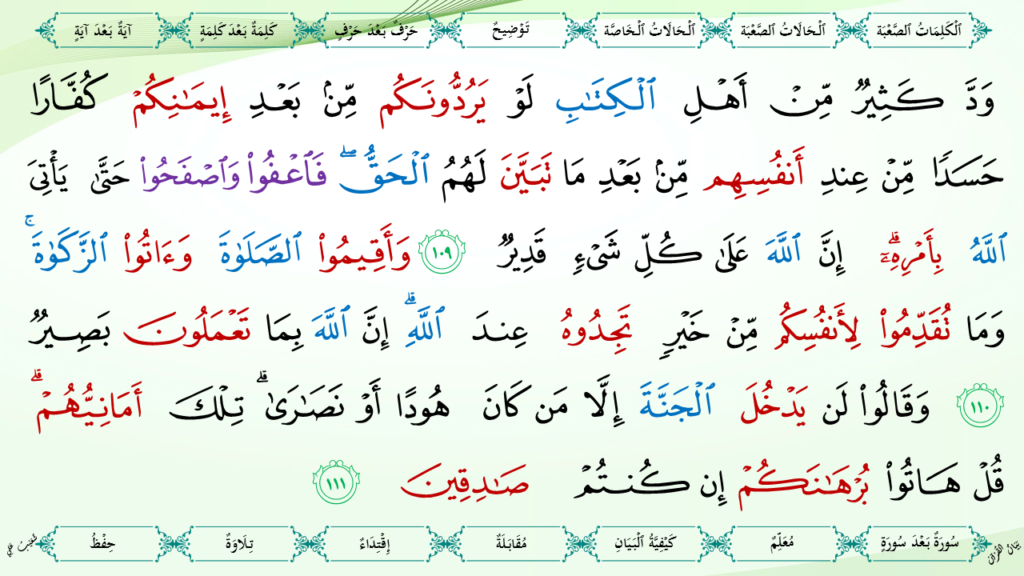 اَلْكَلِمَاتُ الصَّعْبَة اَلْحَالَاتُ الصَّعْبَة اَلْحَالَاتُ الْخَاصَّة تَوْضِيحٌ حَرْفٌ بَعْدَ حَرْفٍ كَلِمَةٌ بَعْدَ كَلِمَةٍ آيَةٌ بَعْدَ آيَةٍ
وَدَّ كَثِيرٌ مِّنْ أَهْلِ ٱلْكِتَٰبِ لَوْ يَرُدُّونَكُم مِّنۢ بَعْدِ إِيمَٰنِكُمْ كُفَّارًا
حَسَدًا مِّنْ عِندِ أَنفُسِهِم مِّنۢ بَعْدِ مَا تَبَيَّنَ لَهُمُ ٱلْحَقُّ ۖ فَٱعْفُوا۟ وَٱصْفَحُوا۟ حَتَّىٰ يَأْتِىَ
ٱللَّهُ بِأَمْرِهِۦٓ ۗ إِنَّ ٱللَّهَ عَلَىٰ كُلِّ شَىْءٍ قَدِيرٌ ١٠٩ وَأَقِيمُوا۟ ٱلصَّلَوٰةَ وَءَاتُوا۟ ٱلزَّكَوٰةَ ۚ
وَمَا تُقَدِّمُوا۟ لِأَنفُسِكُم مِّنْ خَيْرٍ تَجِدُوهُ عِندَ ٱللَّهِ ۗ إِنَّ ٱللَّهَ بِمَا تَعْمَلُونَ بَصِيرٌ
١١٠ وَقَالُوا۟ لَن يَدْخُلَ ٱلْجَنَّةَ إِلَّا مَن كَانَ هُودًا أَوْ نَصَٰرَىٰ ۗ تِلْكَ أَمَانِيُّهُمْ ۗ
قُلْ هَاتُوا۟ بُرْهَٰنَكُمْ إِن كُنتُمْ صَٰدِقِينَ ١١١
بَيَانُ الْقُرْآن سُورَةٌ بَعْدَ سُورَةٍ مُعَلِّمٌ كَيْفِيَّةُ الْبَيَانِ مُقَابَلَةٌ اِقْتِدَاءٌ تِلَاوَةٌ حِفْظٌ